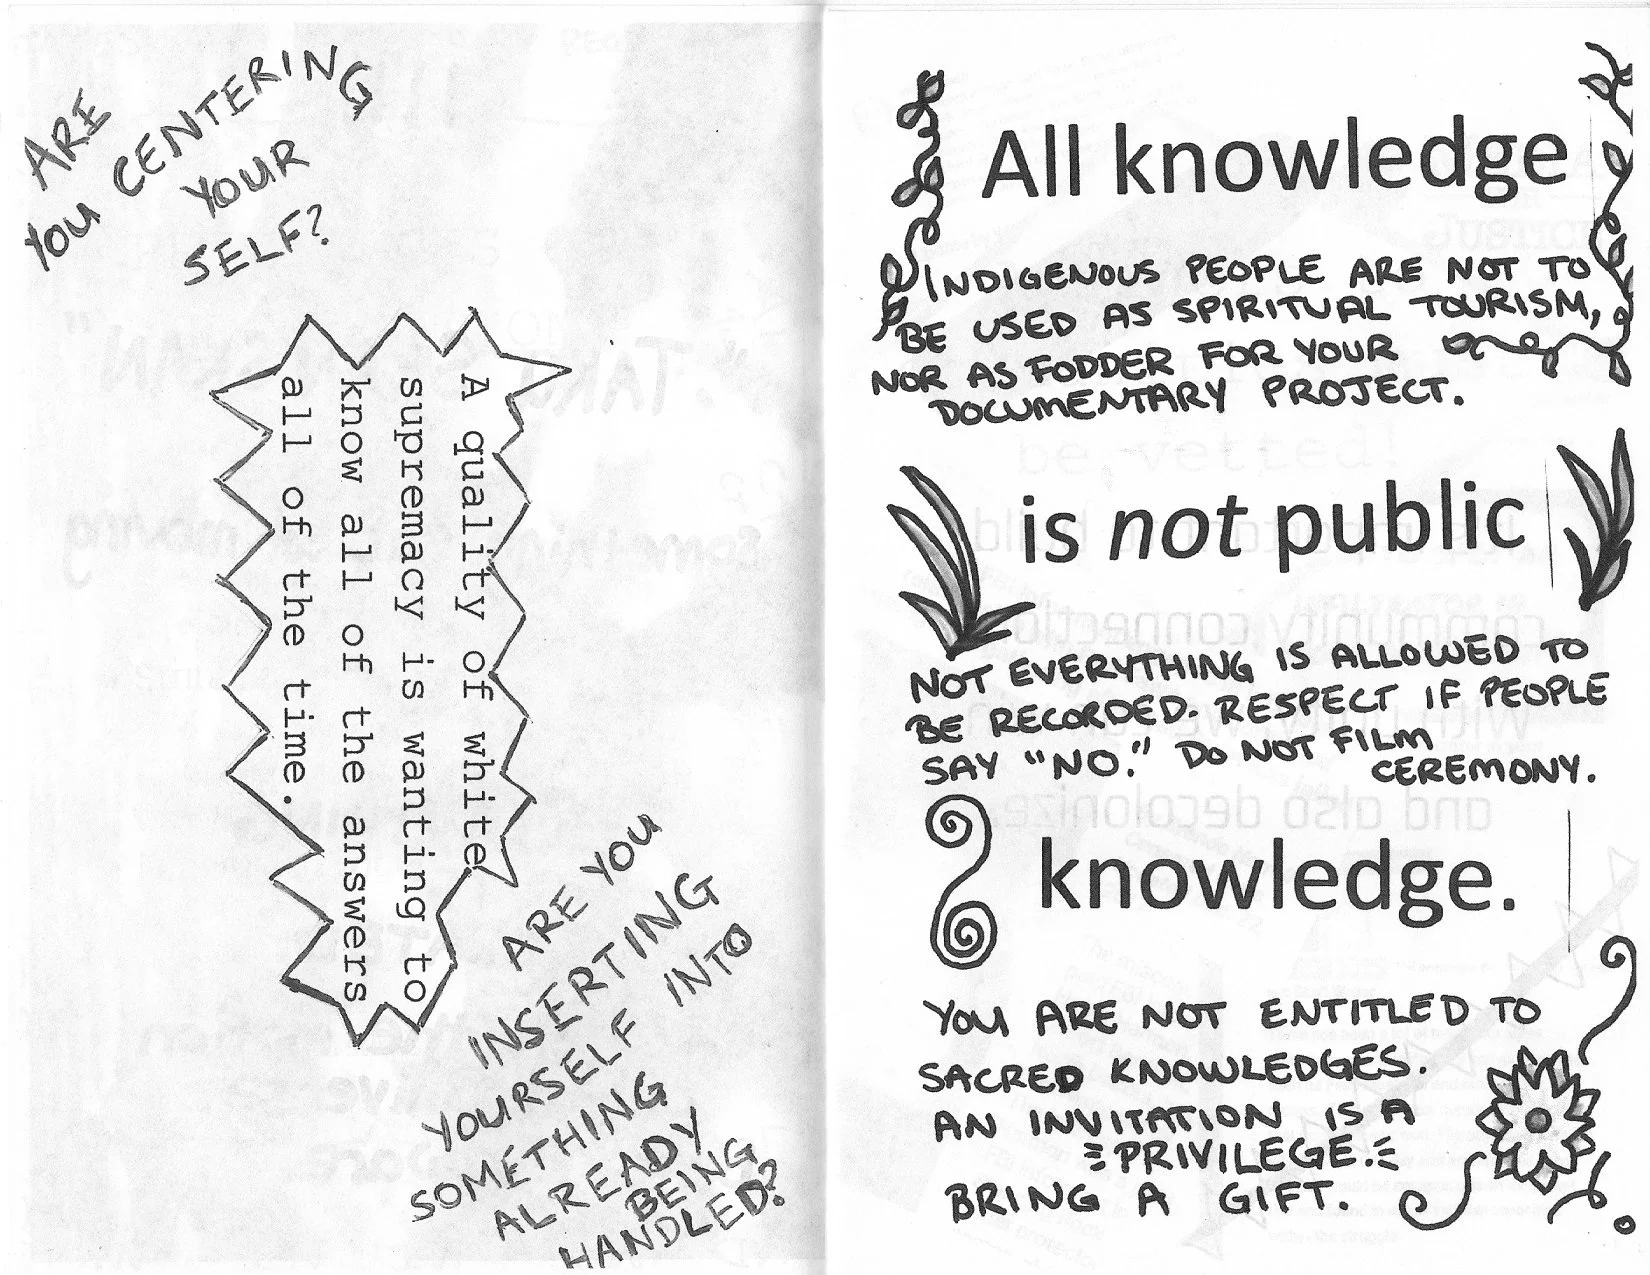 ARE
YOU CENTERING
YOUR
SELF?
A quality of white
supremacy is wanting to
know all of the answers
all of the time.
ARE YOU
INSERTING
YOURSELF INTO
SOMETHING
ALREADY
BEING
HANDLED?
All knowledge
INDIGENOUS PEOPLE ARE NOT TO
BE USED AS SPIRITUAL TOURISM,
NOR AS FODDER FOR YOUR
DOCUMENTARY PROJECT.
is not public
NOT EVERYTHING IS ALLOWED TO
BE RECORDED. RESPECT IF PEOPLE
SAY "NO." DO NOT FILM
CEREMONY.
knowledge.
YOU ARE NOT ENTITLED TO
SACRED KNOWLEDGES.
AN INVITATION IS A
PRIVILEGE.
BRING A GIFT.